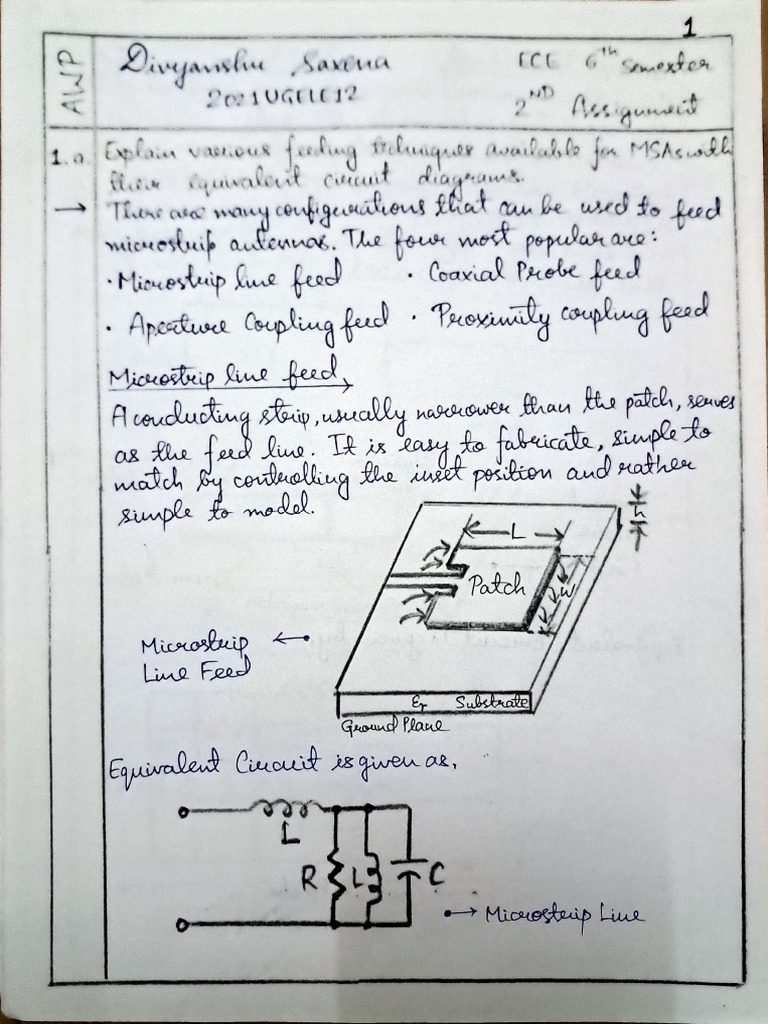 1
AWP
Divyanshu Saxena
ECE 6th Semester
2021UGEC12
2ND Assignment
1.a Explain various feeding techniques available for MSAs with
their equivalent circuit diagrams.
→ There are many configurations that can be used to feed
microstrip antennas. The four most popular are:
· Microstrip line feed · Coaxial Probe feed
· Aperture Coupling feed · Proximity coupling feed
Microstrip line feed
A conducting strip, usually narrower than the patch, serves
as the feed line. It is easy to fabricate, simple to
match by controlling the inset position and rather
simple to model.
h
L
Patch
W
Microstrip
Line Feed
εr Substrate
Ground Plane
Equivalent Circuit is given as,
L
R L C
Microstrip Line